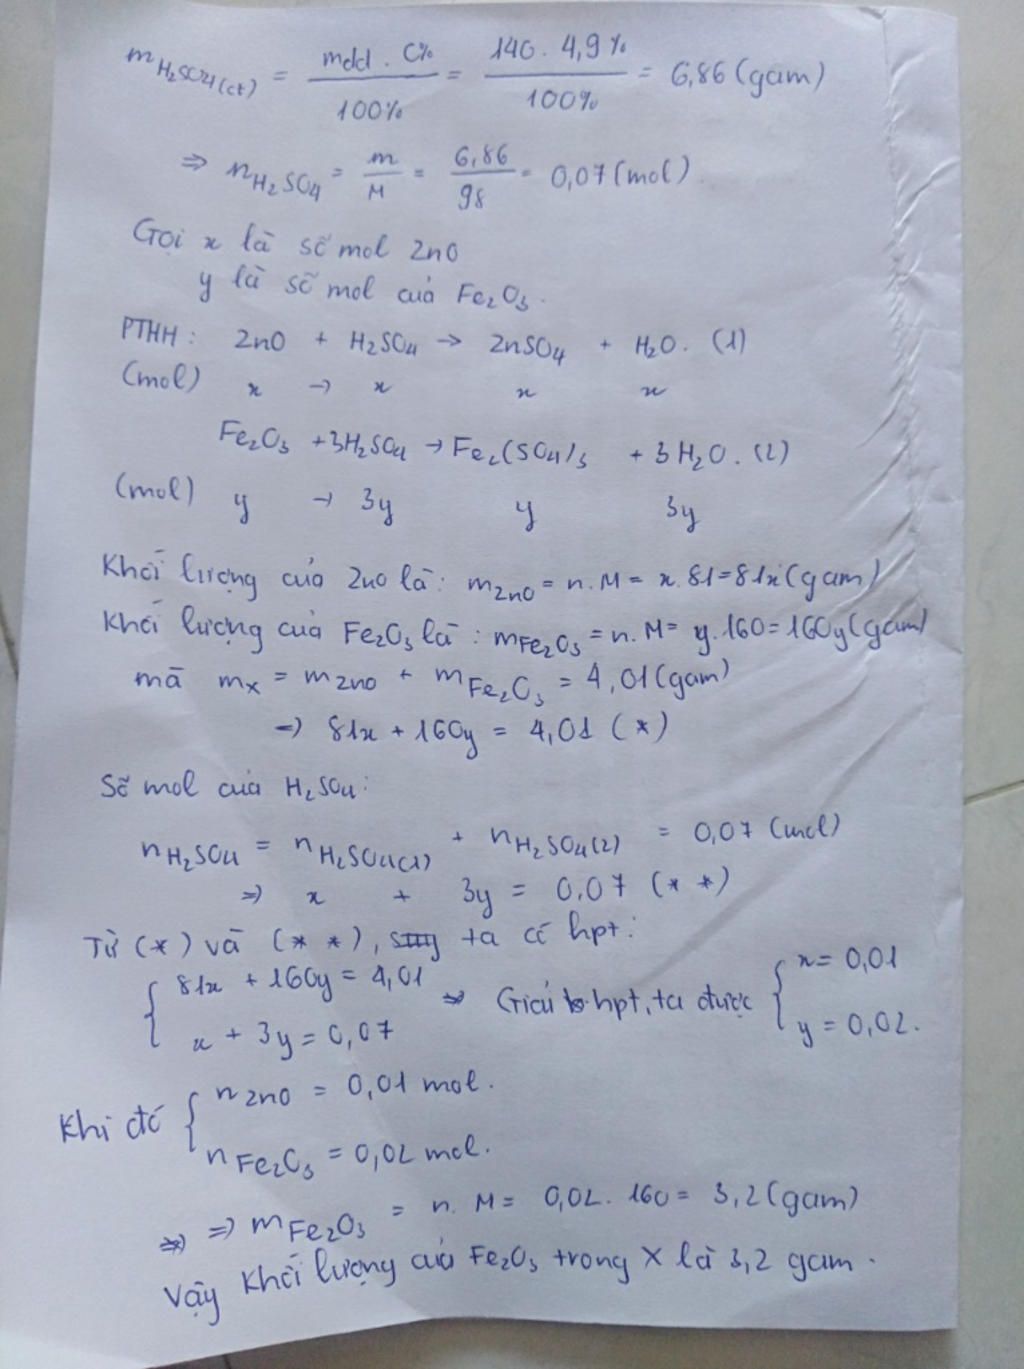 mH₂SO₄(ct) = mdd . C% / 100% = 140 . 4,9% / 100% = 6,86 (gam)
⇒ nH₂SO₄ = m / M = 6,86 / 98 = 0,07 (mol).
Gọi x là số mol ZnO
y là số mol của Fe₂O₃.
PTHH: ZnO + H₂SO₄ → ZnSO₄ + H₂O. (1)
(mol) x → x x x
Fe₂O₃ + 3H₂SO₄ → Fe₂(SO₄)₃ + 3H₂O. (2)
(mol) y → 3y y 3y
Khối lượng của ZnO là: mZnO = n. M = x. 81 = 81x (gam)
Khối lượng của Fe₂O₃ là: mFe₂O₃ = n. M = y. 160 = 160y (gam)
mà mx = mZnO + mFe₂O₃ = 4,01 (gam)
→ 81x + 160y = 4,01 (*)
Số mol của H₂SO₄:
nH₂SO₄ = nH₂SO₄(1) + nH₂SO₄(2) = 0,07 (mol)
⇒ x + 3y = 0,07 (**)
Từ (*) và (**), ta có hpt:
{ 81x + 160y = 4,01 ⇒ Giải hpt, ta được { x = 0,01
x + 3y = 0,07 y = 0,02.
Khi đó { nZnO = 0,01 mol.
nFe₂O₃ = 0,02 mol.
⇒ mFe₂O₃ = n. M = 0,02. 160 = 3,2 (gam)
Vậy khối lượng của Fe₂O₃ trong X là 3,2 gam.